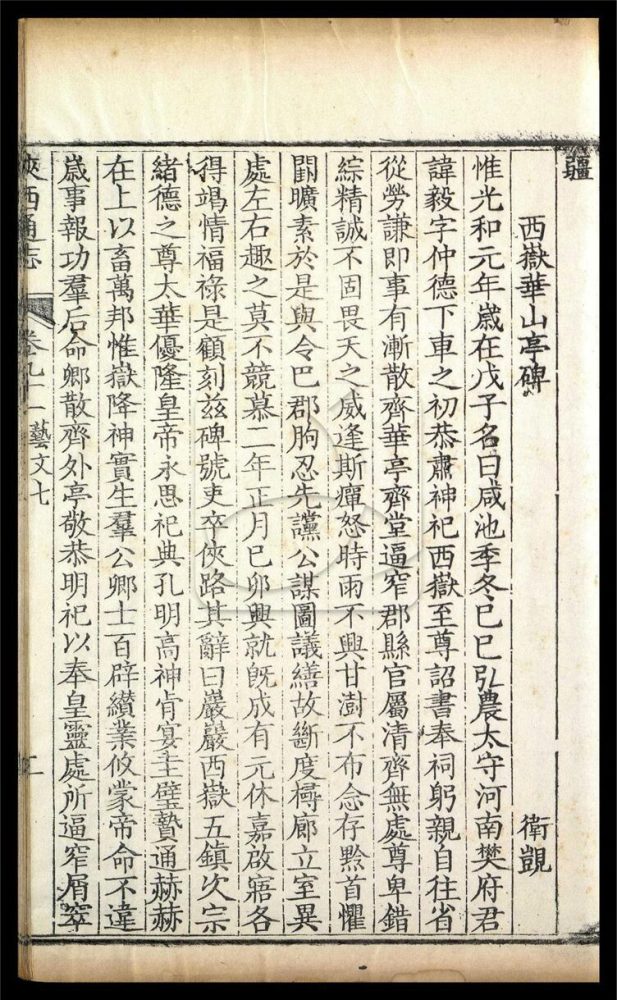 疆
西嶽華山亭碑 衛覬
惟光和元年歲在戊子名曰咸池季冬巳巳弘農太守河南樊府君
諱毅字仲德下車之初恭肅神祀西嶽至尊詔書奉祠躬親自往省
從勞謙即事有漸散齊華亭齊堂逼窄郡縣官屬清齊無處尊卑錯
綜精誠不固畏天之威逢斯癉怒時雨不興甘澍不布念存黔首懼
闕曠素於是與令巴郡朐忍先讜公謀圖議繕故斷度樽廊立室異
處左右趣之莫不競慕二年正月巳卯興就既成有元休嘉啟寤各
得竭情福祿是顧刻茲碑號吏卒俠路其辭曰巖巖西嶽五鎮次宗
緒德之尊太華優隆皇帝永思祀典孔明高神肯宴圭璧贄通赫赫
在上以畜萬邦惟嶽降神實生羣公卿士百辟纘業攸蒙帝命不違
歲事報功羣后命卿散齊外亭敬恭明祀以奉皇靈處所逼窄屑窣
陝西通志 卷九十一 藝文七